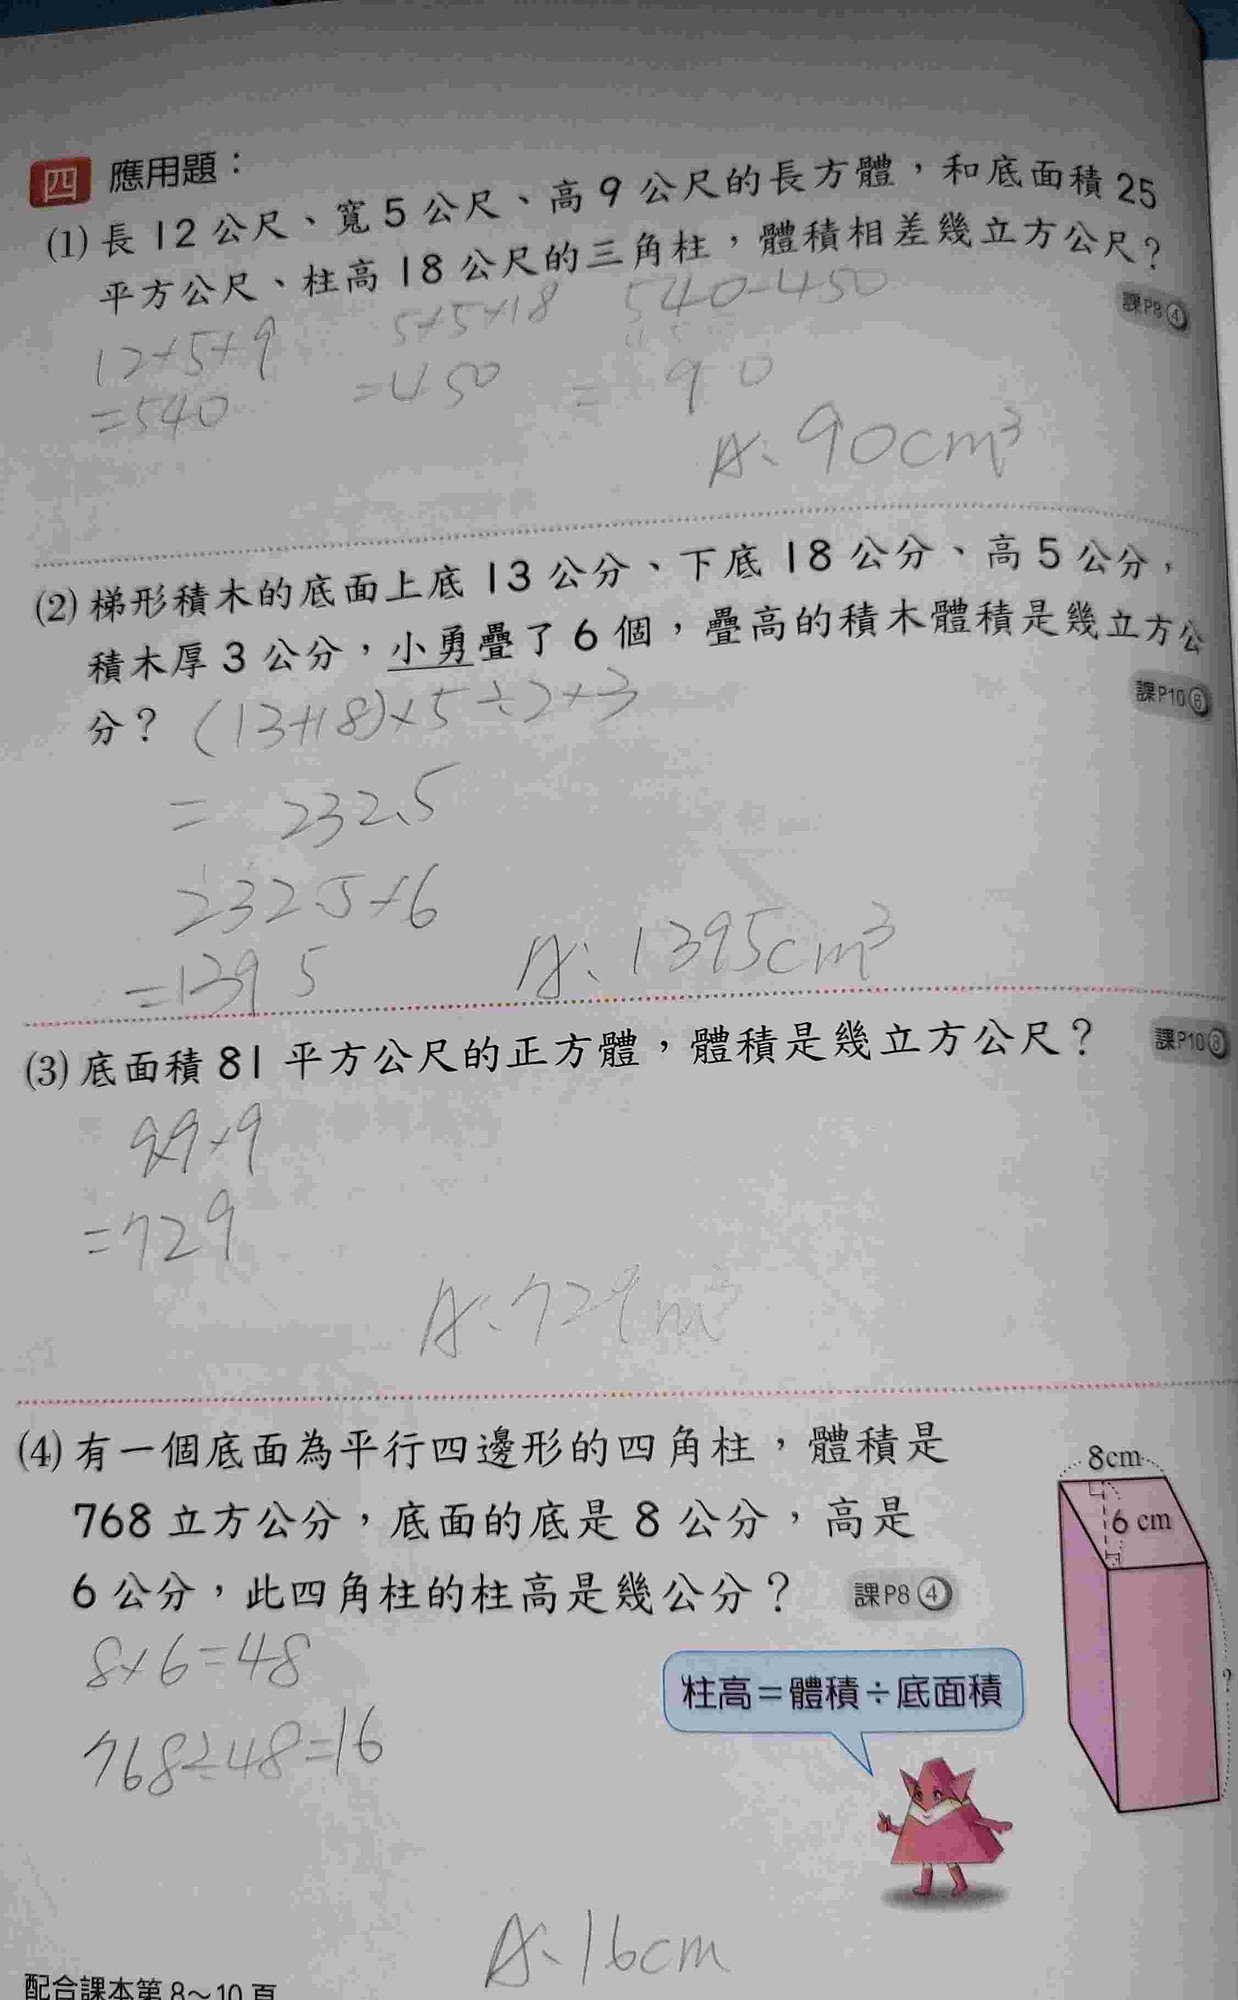 四 應用題：
(1) 長12公尺、寬5公尺、高9公尺的長方體，和底面積25
平方公尺、柱高18公尺的三角柱，體積相差幾立方公尺？
課P8④
12×5×9 5×5×18 540-450
=540 =450 = 90
A：90cm³
(2) 梯形積木的底面上底13公分、下底18公分、高5公分，
積木厚3公分，小勇疊了6個，疊高的積木體積是幾立方公
分？ (13+18)×5÷2×3
課P10⑥
= 232.5
232.5×6
=1395 A：1395cm³
(3) 底面積81平方公尺的正方體，體積是幾立方公尺？ 課P10⑧
9×9×9
=729
A：729m³
(4) 有一個底面為平行四邊形的四角柱，體積是
768立方公分，底面的底是8公分，高是
6公分，此四角柱的柱高是幾公分？ 課P8④
8cm
6 cm
?
8×6=48
768÷48=16
柱高＝體積÷底面積
A：16cm
配合課本第8～10頁